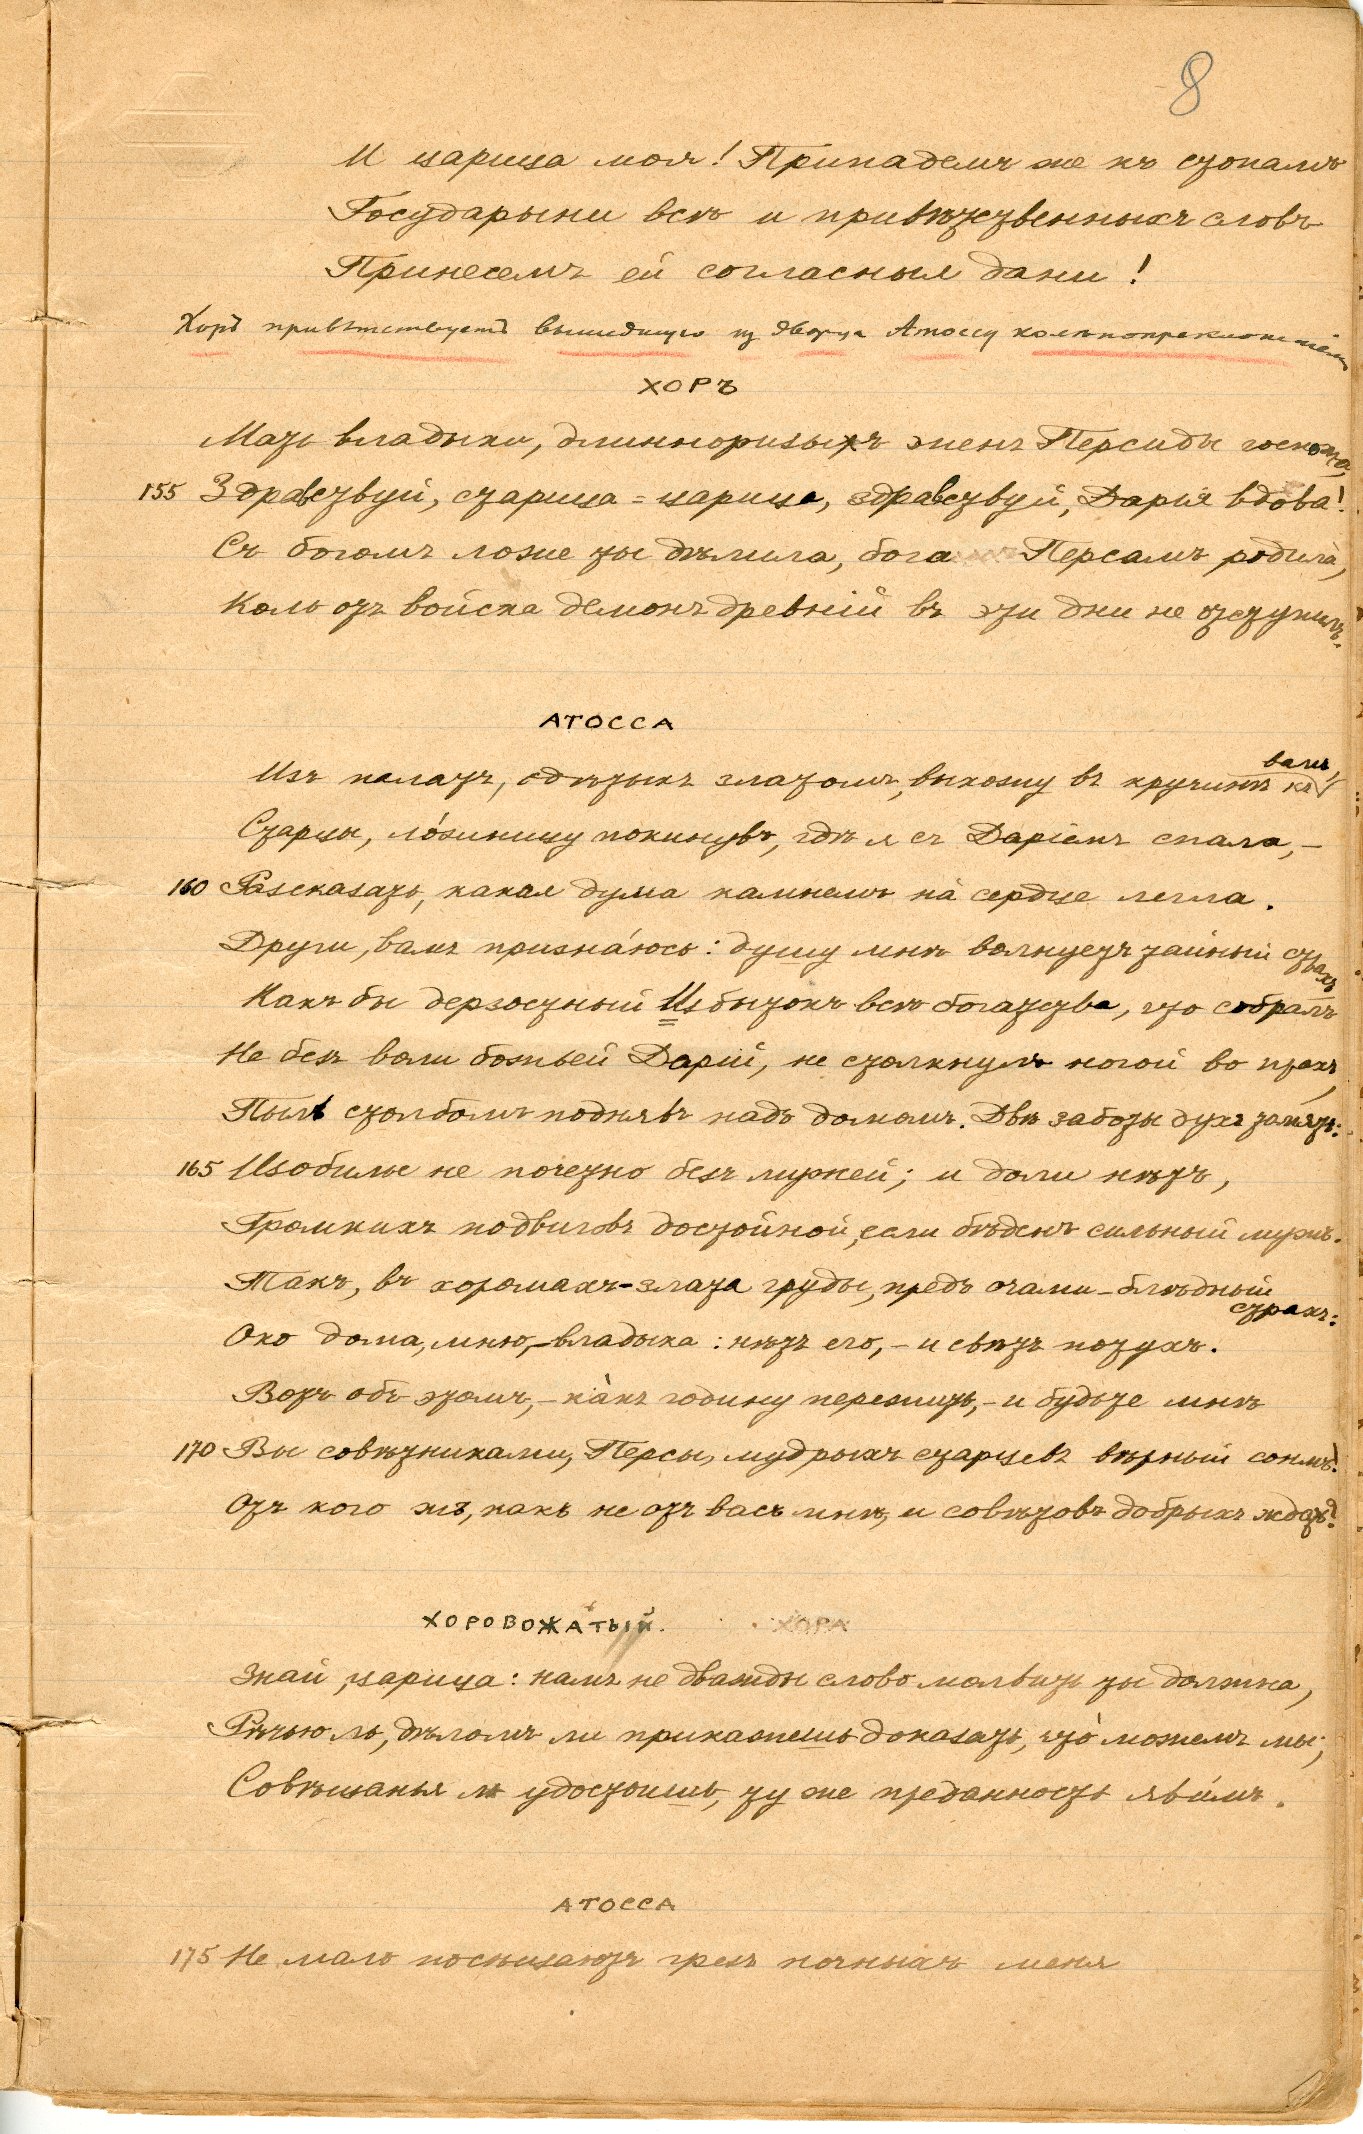 8
И царица моя! Припадемъ же къ стопамъ
Государыни всѣ и привѣтственныхъ словъ
Принесемъ ей согласныя дани!
Хоръ привѣтствуетъ вышедшую из дворца Атоссу колѣнопреклоненіемъ
ХОРЪ
Мать владыки, длиннориз­ыхъ женъ Персиды госпожа,
155 Здравствуй, старица-царица, здравствуй, Дарія вдова!
Съ богомъ ложе ты дѣлила, бога Персамъ родила,
Коль отъ войска демонъ древній въ эти дни не отступилъ.
АТОССА
Изъ палатъ, одѣтыхъ златомъ, выхожу въ кручинѣ къ вамъ,
Старцы, ло́жницу покинувъ, гдѣ я съ Даріемъ спала,—
160 Разсказать, какая дума камнемъ на́ сердце легла.
Други, вамъ призна́юсь: душу мнѣ волнуетъ тайный страхъ
Какъ бы дерзостный Избытокъ всѣ богатства, что собралъ
Не безъ воли божьей Дарій, не столкнулъ ногой во прахъ,
Пыль столбомъ поднявъ надъ домомъ. Двѣ заботы духъ томятъ:
165 Изобилье не почетно безъ мужей; и доли нѣтъ,
Громкихъ подвиговъ достойной, если бѣденъ сильный мужъ.
Такъ, въ хоромахъ-злата груды, предъ очами-блѣдный страхъ:
Око дома, мню,-владыка: нѣтъ его,- и свѣтъ потухъ.
Вотъ объ этомъ,- ка̀къ годину пережить,- и будьте мнѣ
170 Вы совѣтниками, Персы, мудрыхъ старцевъ вѣрный сонмъ!
Отъ кого жъ, какъ не отъ васъ мнѣ, и совѣтовъ добрыхъ ждать?
ХОРОВОЖАТЫЙ. ХОРА
Знай, царица: намъ не дважды слово молвить ты должна,
Рѣчью ль, дѣломъ ли прикажешь доказать, что̀ можемъ мы;
Совѣщанья ль удостоишь, ту же преданность яви́мъ.
АТОССА
175 Не мало посѣщаютъ грезъ ночныхъ меня